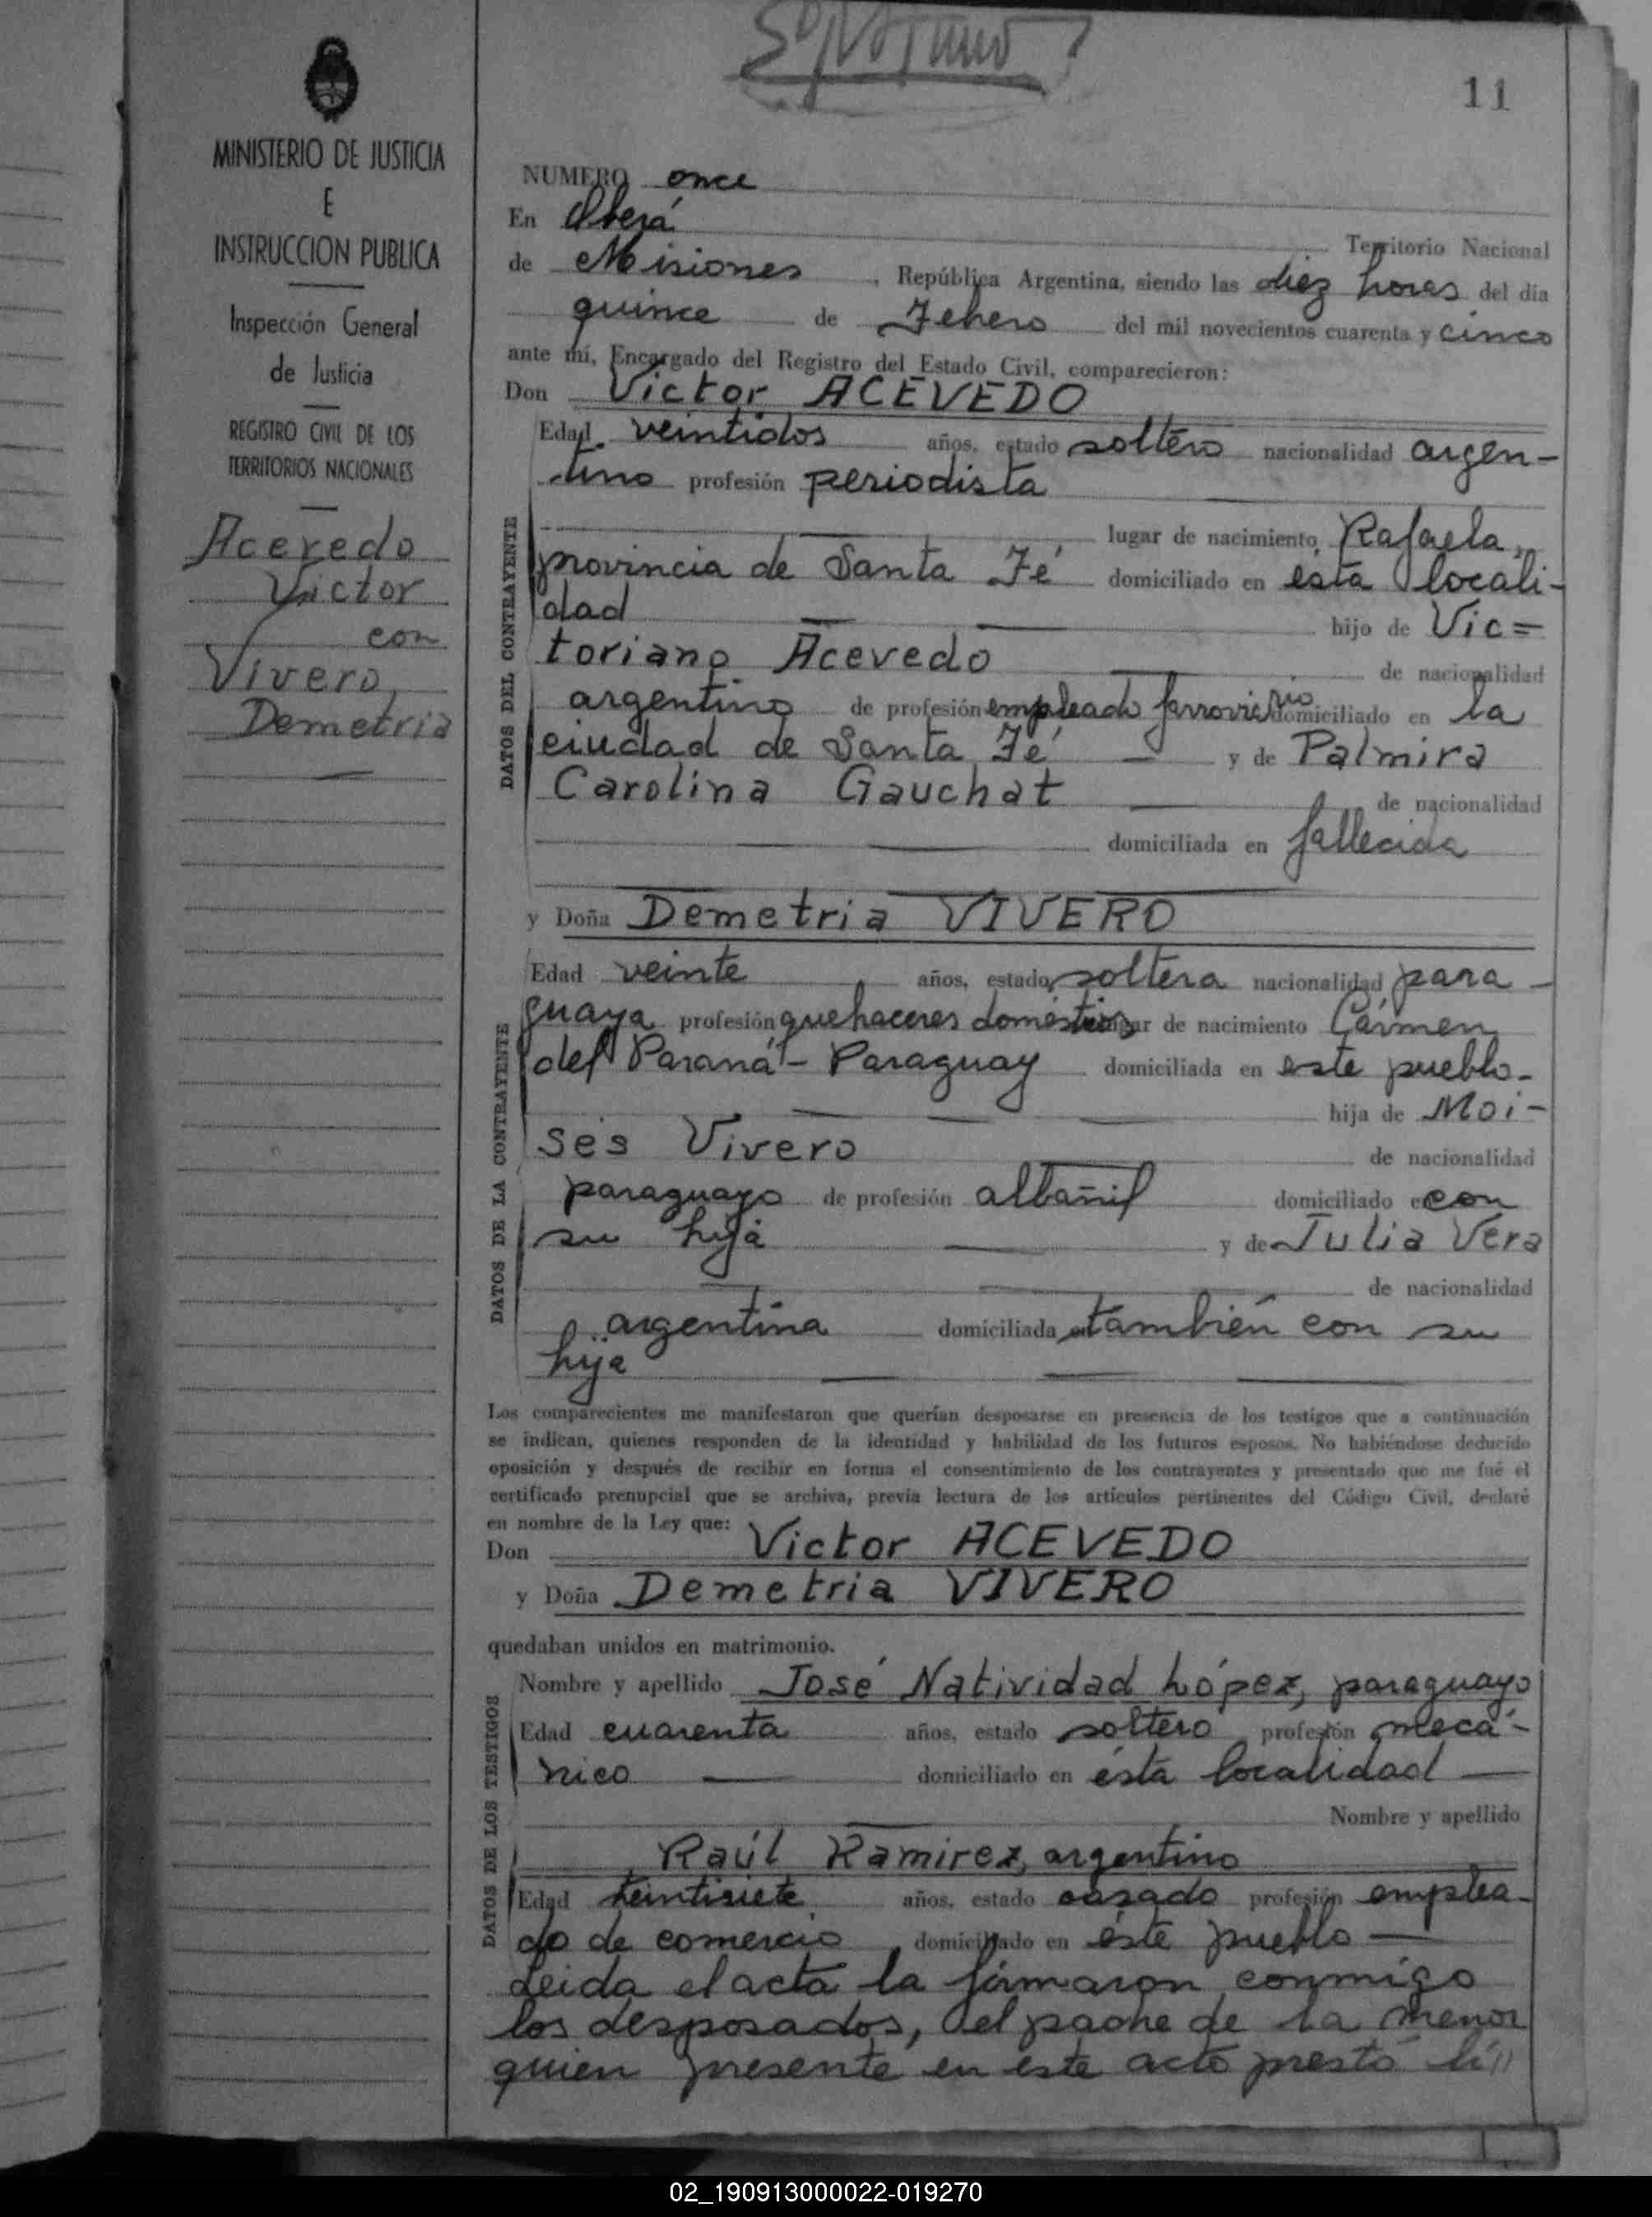 11
MINISTERIO DE JUSTICIA
E
INSTRUCCION PUBLICA
Inspección General
de Justicia
REGISTRO CIVIL DE LOS
TERRITORIOS NACIONALES
Acevedo
Victor
con
Vivero,
Demetria
NUMERO once
En Oberá Territorio Nacional
de Misiones, República Argentina, siendo las diez horas del día
quince de Febrero del mil novecientos cuarenta y cinco
ante mí, Encargado del Registro del Estado Civil, comparecieron:
Don Victor ACEVEDO
DATOS DEL CONTRAYENTE
Edad veintidos años, estado soltero nacionalidad argen-
tino profesión periodista
lugar de nacimiento Rafaela,
provincia de Santa Fé domiciliado en esta locali-
dad hijo de Vic=
toriano Acevedo de nacionalidad
argentino de profesión empleado ferroviario domiciliado en la
ciudad de Santa Fé y de Palmira
Carolina Gauchat de nacionalidad
domiciliada en fallecida
y Doña Demetria VIVERO
DATOS DE LA CONTRAYENTE
Edad veinte años, estado soltera nacionalidad para-
guaya profesión quehaceres domésticos lugar de nacimiento Cármen
del Paraná - Paraguay domiciliada en este pueblo-
hija de Moi-
sés Vivero de nacionalidad
paraguayo de profesión albañil domiciliado en con
su hija y de Julia Vera
de nacionalidad
argentina domiciliada en también con su
hija
Los comparecientes me manifestaron que querían desposarse en presencia de los testigos que a continuación
se indican, quienes responden de la identidad y habilidad de los futuros esposos. No habiéndose deducido
oposición y después de recibir en forma el consentimiento de los contrayentes y presentado que me fué el
certificado prenupcial que se archiva, previa lectura de los artículos pertinentes del Código Civil, declaré
en nombre de la Ley que:
Don Victor ACEVEDO
y Doña Demetria VIVERO
quedaban unidos en matrimonio.
DATOS DE LOS TESTIGOS
Nombre y apellido José Natividad López, paraguayo
Edad cuarenta años, estado soltero profesión mecá-
nico domiciliado en ésta localidad
Nombre y apellido
Raúl Ramirez, argentino
Edad veintisiete años, estado casado profesión emplea-
do de comercio, domiciliado en éste pueblo
Leida el acta la firmaron conmigo
los desposados, el padre de la menor
quien presente en este acto prestó
02_190913000022-019270